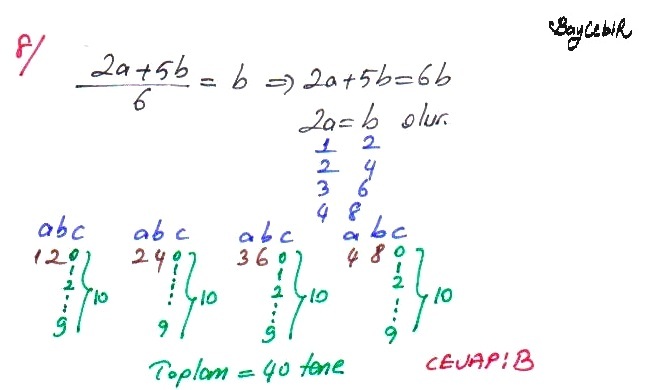 BayCebiR
8/
2a+5b/6 = b ⇒ 2a+5b=6b
2a=b olur.
1 2
2 4
3 6
4 8
abc abc abc abc
120 240 360 480
1 1 1 1
2 2 2
10 10 10 10
9 9 9 9
Toplam = 40 tane CEVAP:B